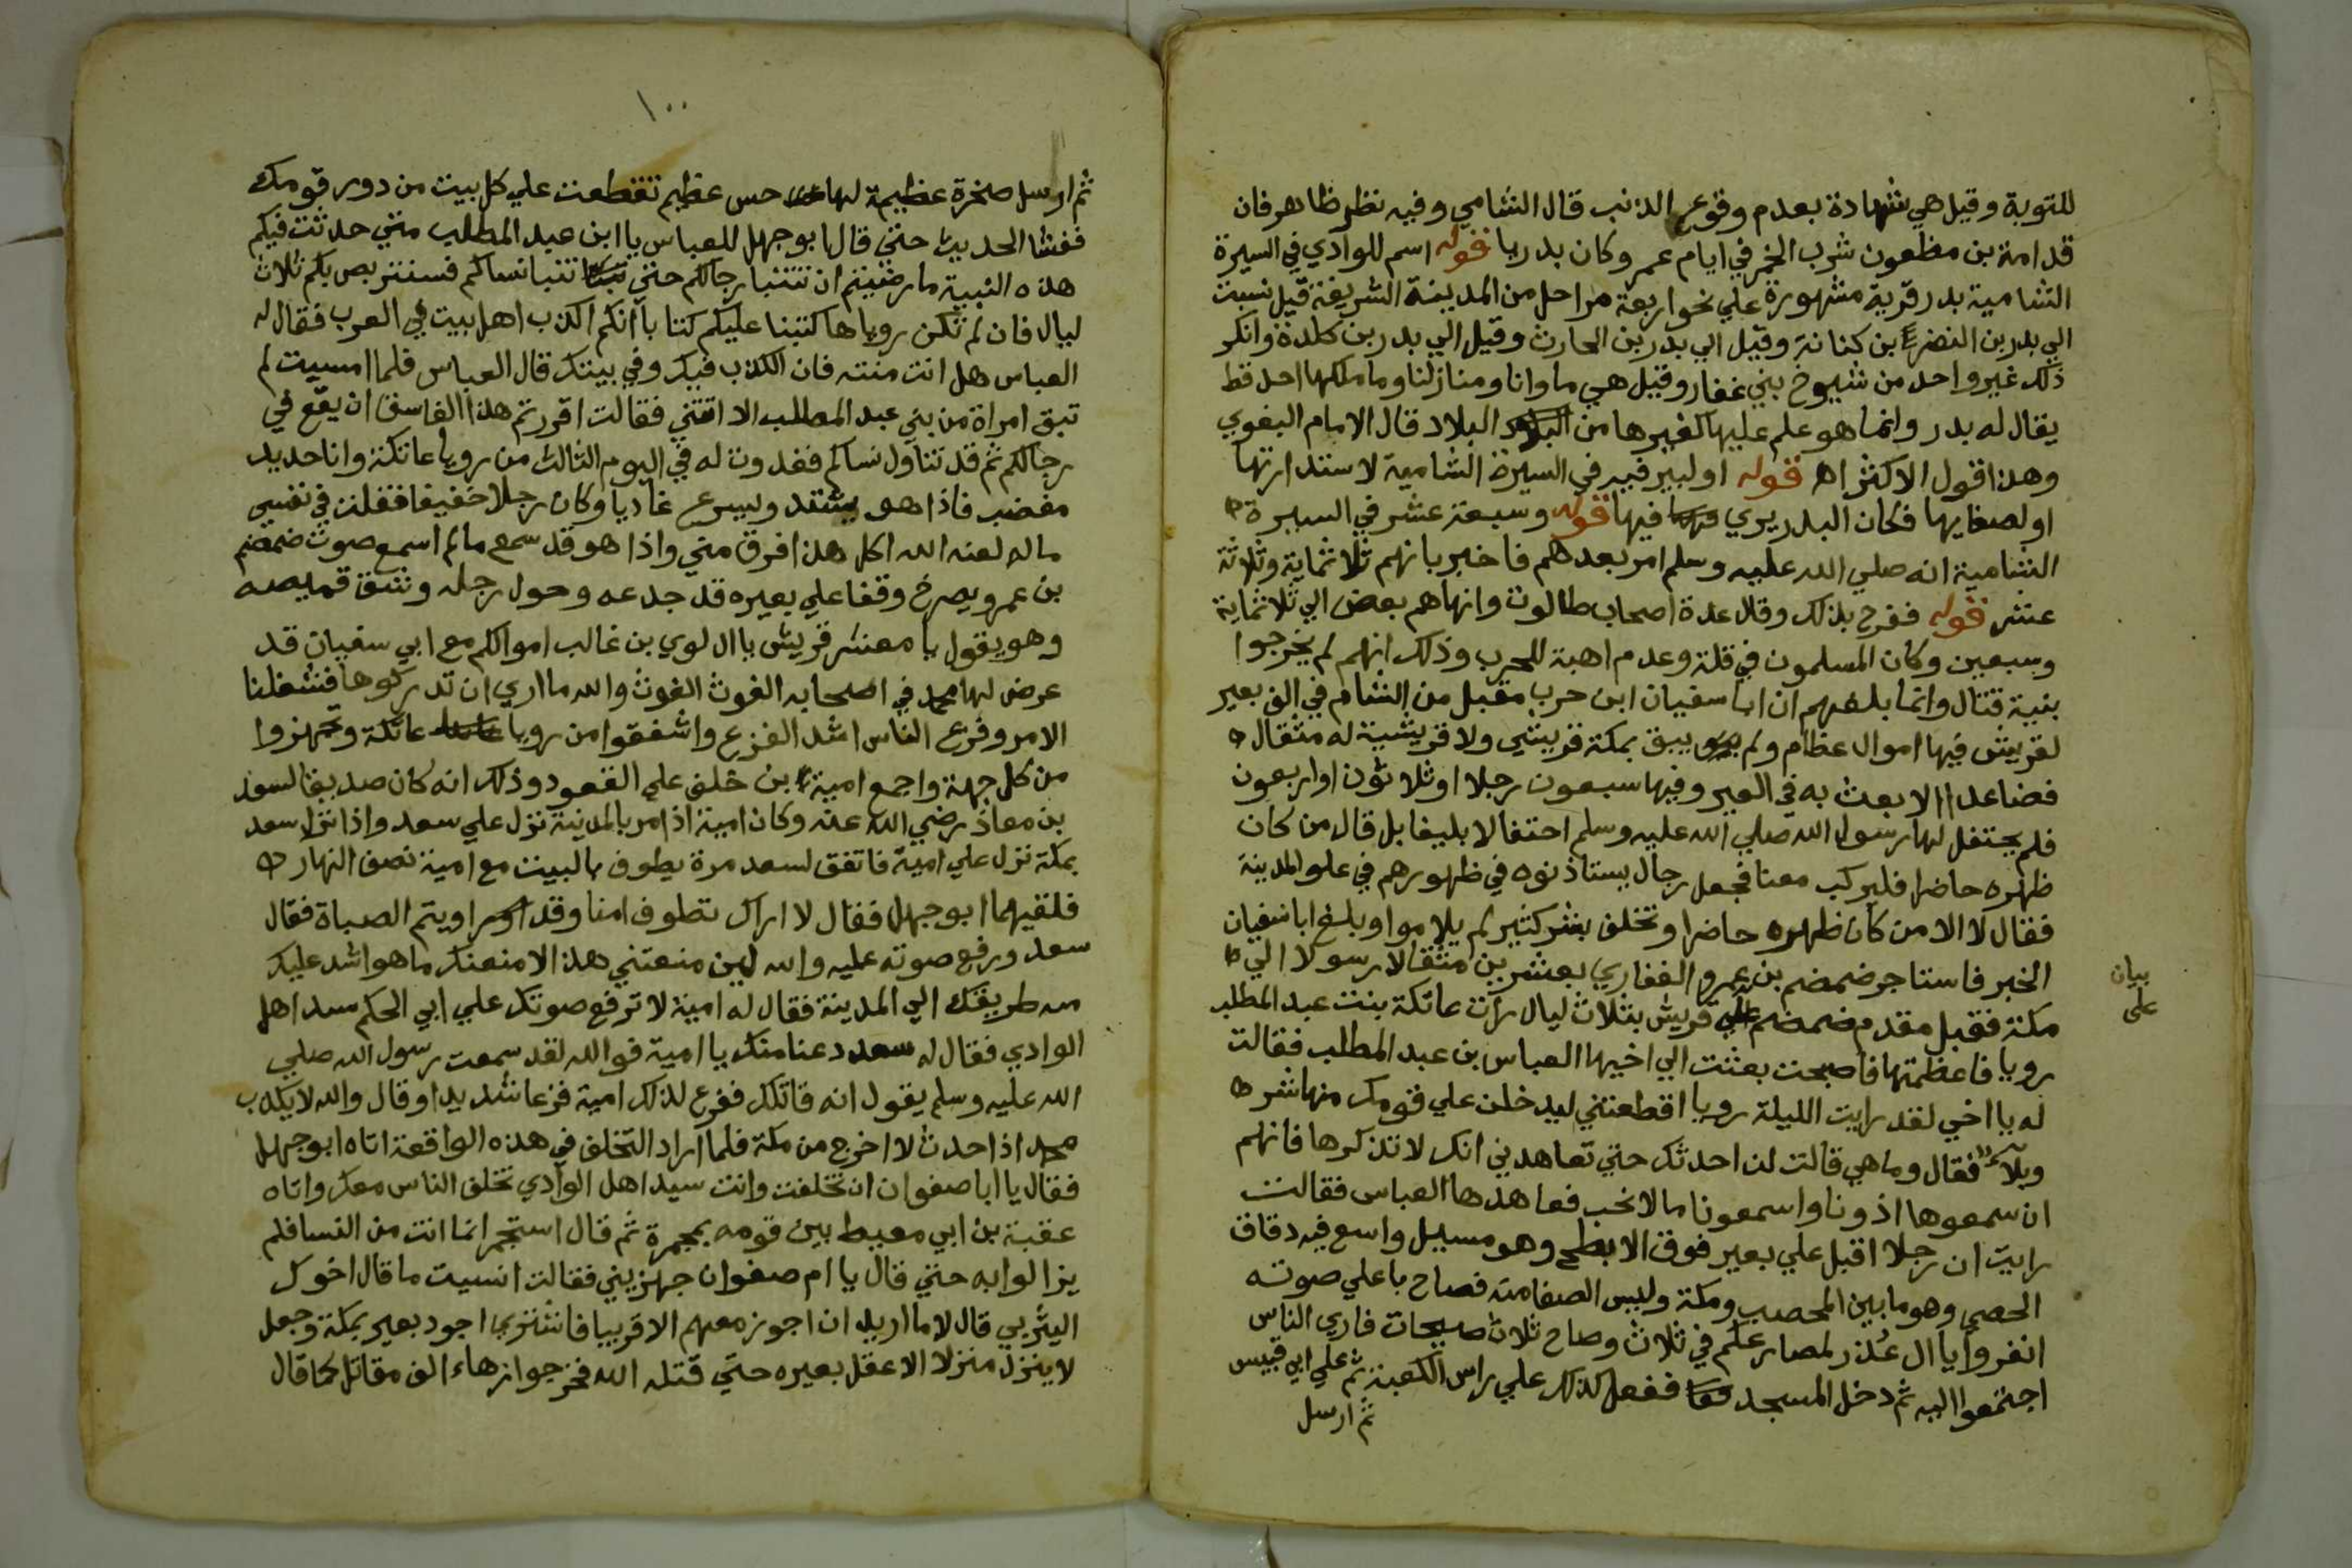 للتوبة وقيل هي شهادة بعدم وقوع الذنب قال الشامي وفيه نظر ظاهر فان
قدامة بن مظعون شرب الخمر في ايام عمر وكان بدريا قوله اسم للوادي في السيرة
الشامية بدر قرية مشهورة علي نحو اربعة مراحل من المدينة الشريفة قيل نسبت
الي بدر بن النضر بن كنانة وقيل الي بدر بن الحارث وقيل الي بدر بن كلدة وانكر
ذلك غير واحد من شيوخ بني غفار وقيل هي ماوانا ومنازلنا وما ملكها احد قط
يقال له بدر وانما هو علم عليها كغيرها من البلاد قال الامام البغوي
وهذا قول الاكثر اه قوله او لبير فيه في السيرة الشامية لاستدارتها
او لصفايها فكان البدر يري فيها قوله وسبعة عشر في السيرة
الشامية انه صلي الله عليه وسلم امر بعدهم فاخبر بانهم ثلاثماية وثلاثة
عشر قوله ففرح بذلك وقال عدة اصحاب طالوت وانهاهم بعض الي ثلاثماية
وسبعين وكان المسلمون في قلة وعدم اهبة للحرب وذلك انهم لم يخرجوا
بنية قتال وانما بلغهم ان ابا سفيان ابن حرب مقبل من الشام في الف بعير
لقريش فيها اموال عظام ولم يبق بمكة قريشي ولا قريشية له مثقال
فضاعدا الا بعث به في العير وفيها سبعون رجلا او ثلاثون او اربعون
فلم يحتفل لها رسول الله صلي الله عليه وسلم احتفالا بليغا بل قال من كان
ظهره حاضرا فليركب معنا فجعل رجال يستاذنوه في ظهورهم في علو المدينة
فقال لا الا من كان ظهره حاضرا وتخلف بشر كثير لم يلاموا وبلغ ابا سفيان
الخبر فاستاجر ضمضم بن عمرو الغفاري بعشرين مثقالا رسولا الي
مكة فقبل مقدم ضمضم علي قريش بثلاث ليال رات عاتكة بنت عبد المطلب
رويا فاعظمتها فاصبحت بعثت الي اخيها العباس بن عبد المطلب فقالت
له يا اخي لقد رايت الليلة رويا اقطعتني ليدخلن علي قومك منها شر
وبلاء فقال وما هي قالت لن احدثك حتي تعاهدني انك لا تذكرها فانهم
ان سمعوها اذونا واسمعونا ما لا نحب فعاهدها العباس فقالت
رايت ان رجلا اقبل علي بعير فوق الابطح وهو مسيل واسع فيه دقاق
الحصي وهو ما بين المحصب ومكة وليس الصفا منه فصاح باعلي صوته
انفروا يا ال غدر لمصارعكم في ثلاث وصاح ثلاث صيحات فاري الناس
اجتمعوا اليه ثم دخل المسجد ففعل كذلك علي راس الكعبة ثم علي ابي قبيس
ثم ارسل
بيان
على
١٠٠
ثم ارسل صخرة عظيمة لها حس عظيم تقطعت علي كل بيت من دور قومك
ففشا الحديث حتي قال ابو جهل للعباس يا ابن عبد المطلب متي حدثت فيكم
هذه النبية ما رضيتم ان تتنبا رجالكم حتي تتنبا نساكم فسنتربص بكم ثلاث
ليال فان لم تكن روياها كتبنا عليكم كتابا انكم اكذب اهل بيت في العرب فقال له
العباس هل انت منته فان الكذب فيك وفي بيتك قال العباس فلما امسيت لم
تبق امراة من بني عبد المطلب الا اتتني فقالت اقررتم هذا الفاسق ان يقع في
رجالكم ثم قد تناول نساكم فغدوت له في اليوم الثالث من رويا عاتكة وانا حديد
مغضب فاذا هو يشتد ويسرع غاديا وكان رجلا خفيفا فقلت في نفسي
ماله لعنه الله اكل هذا فرق مني واذا هو قد سمع ما لم اسمع صوت ضمضم
بن عمرو يصرخ وقفا علي بعيره قد جدعه وحول رحله وشق قميصه
وهو يقول يا معشر قريش يا ال لوي بن غالب اموالكم مع ابي سفيان قد
عرض لها محمد في اصحابه الغوث الغوث والله ما اري ان تدركوها فشغلنا
الامر وفزع الناس اشد الفزع واشفقوا من رويا عاتكة وتجهزوا
من كل جهة واجمع امية بن خلف علي القعود وذلك انه كان صديقا لسعد
بن معاذ رضي الله عنه وكان امية اذا مر بالمدينة نزل علي سعد واذا نزل سعد
بمكة نزل علي امية فاتفق لسعد مرة يطوف بالبيت مع امية نصف النهار
فلقيهما ابو جهل فقال لا اراك تطوف امنا وقد اويتم الصباة فقال
سعد ورفع صوته عليه والله لين منعتني هذا لامنعنك ما هو اشد عليك
منه طريقك الي المدينة فقال له امية لا ترفع صوتك علي ابي الحكم سيد اهل
الوادي فقال له سعد دعنا منك يا امية فوالله لقد سمعت رسول الله صلي
الله عليه وسلم يقول انه قاتلك ففزع لذلك امية فزعا شديدا وقال والله لا يكذب
محمد اذا حدث لا اخرج من مكة فلما اراد التخلف في هذه الواقعة اتاه ابو جهل
فقال يا ابا صفوان ان تخلفت وانت سيد اهل الوادي تخلف الناس معك واتاه
عقبة بن ابي معيط بين قومه بمجمرة ثم قال استجمر انما انت من النسا فلم
يزالوا به حتي قال يا ام صفوان جهزيني فقالت انسيت ما قال اخوك
اليثربي قال لا ما اريد ان اجوز معهم الا قريبا فاشتري اجود بعير بمكة وجعل
لا ينزل منزلا الا عقل بعيره حتي قتله الله فخرجوا زهاء الف مقاتل كما قال